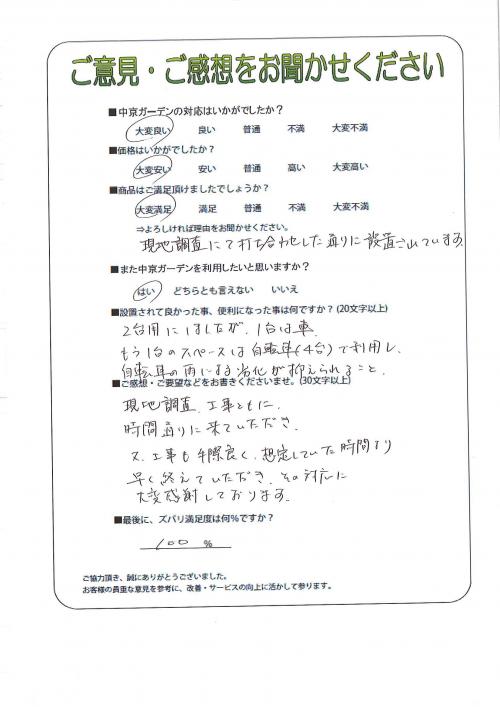 ご意見・ご感想をお聞かせください
■中京ガーデンの対応はいかがでしたか？
大変良い 良い 普通 不満 大変不満
■価格はいかがでしたか？
大変安い 安い 普通 高い 大変高い
■商品はご満足頂けましたでしょうか？
大変満足 満足 普通 不満 大変不満
⇒よろしければ理由をお聞かせください。
現地調査にて打ち合わせした通りに設置されています
■また中京ガーデンを利用したいと思いますか？
はい どちらとも言えない いいえ
■設置されて良かった事、便利になった事は何ですか？(20文字以上)
2台用にしましたが、1台は車、
もう1台のスペースは自転車(4台)で利用し、
自転車の雨による劣化が抑えられること。
■ご感想・ご要望などをお書きくださいませ。(30文字以上)
現地調査、工事ともに、
時間通りに来ていただき、
又、工事も手際良く、想定していた時間より
早く終えていただき、その対応に
大変感謝しております。
■最後に、ズバリ満足度は何％ですか？
100 %
ご協力頂き、誠にありがとうございました。
お客様の貴重な意見を参考に、改善・サービスの向上に活かして参ります。